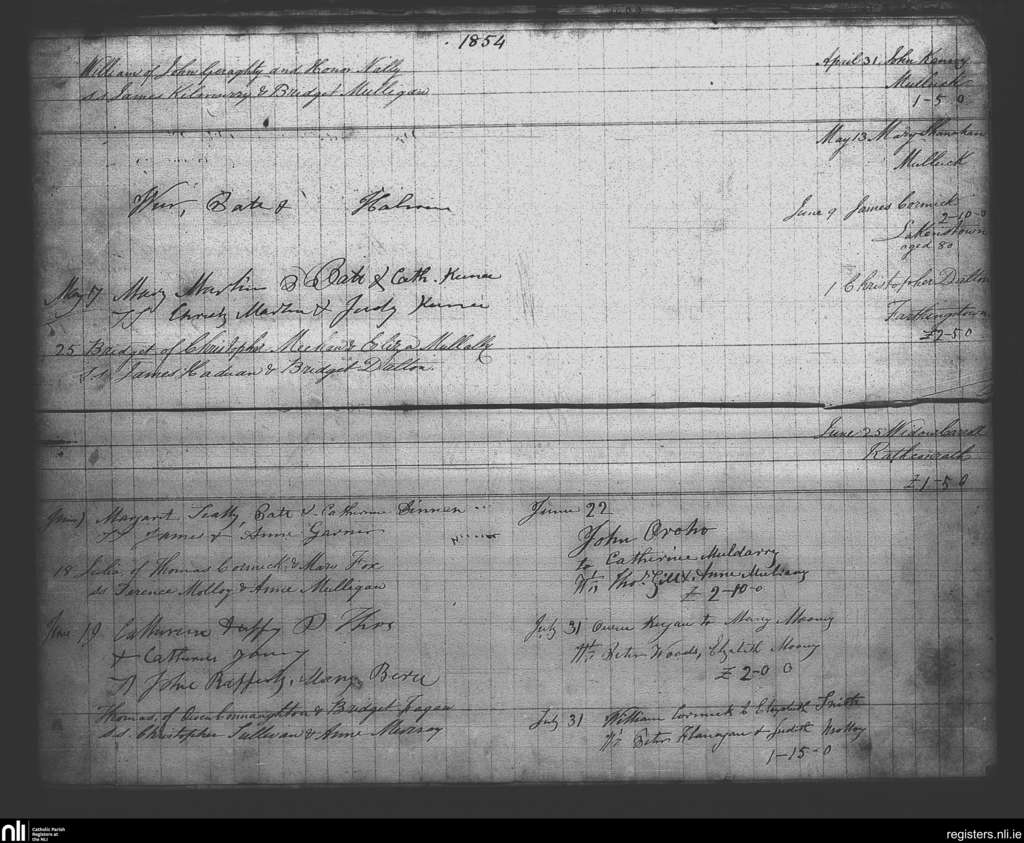 1854
William of John Geraghty and Honor Nally
ss James Kilmurry & Bridget Mulligan
April 31 John
Mulluck
1-5 0
May 13 Mary Shanahan
Mulluck
Weir, Patt &
June 9 James Cormick
2-10-0
aged 80
May 17 Mary Martin D Patt & Cath.
SS Christy Martin & Judy
1 Christopher Dalton
Farthingstown
£2-5 0
25 Bridget of Christopher Meehan & Eliza Mullally
ss James & Bridget Dalton
June 25 Widow Carroll
Rathconrath
£1-5 0
Margaret Scally, Patt & Catherine
SS James & Anne
18 Julia of Thomas Cormick & Mary Fox
ss Terence Molloy & Anne Mulligan
June 19 Catherine D Thos
& Catherine
SS John Rafferty, Mary
Thomas of Owen Connaughton & Bridget Fagan
ss Christopher Sullivan & Anne Murray
June 22
John
to Catherine Muldarry
Wts Thos. Gill & Anne
£ 2-10-0
July 31 Owen Keegan to Mary Mooney
Wts Peter Woods, Elizabeth Mooney
£ 2-0 0
July 31 William Cormick to Elizabeth Smith
Wts Peter Flanagan & Judith Molloy
1-15-0
nli
Catholic Parish
Registers at
the NLI
registers.nli.ie